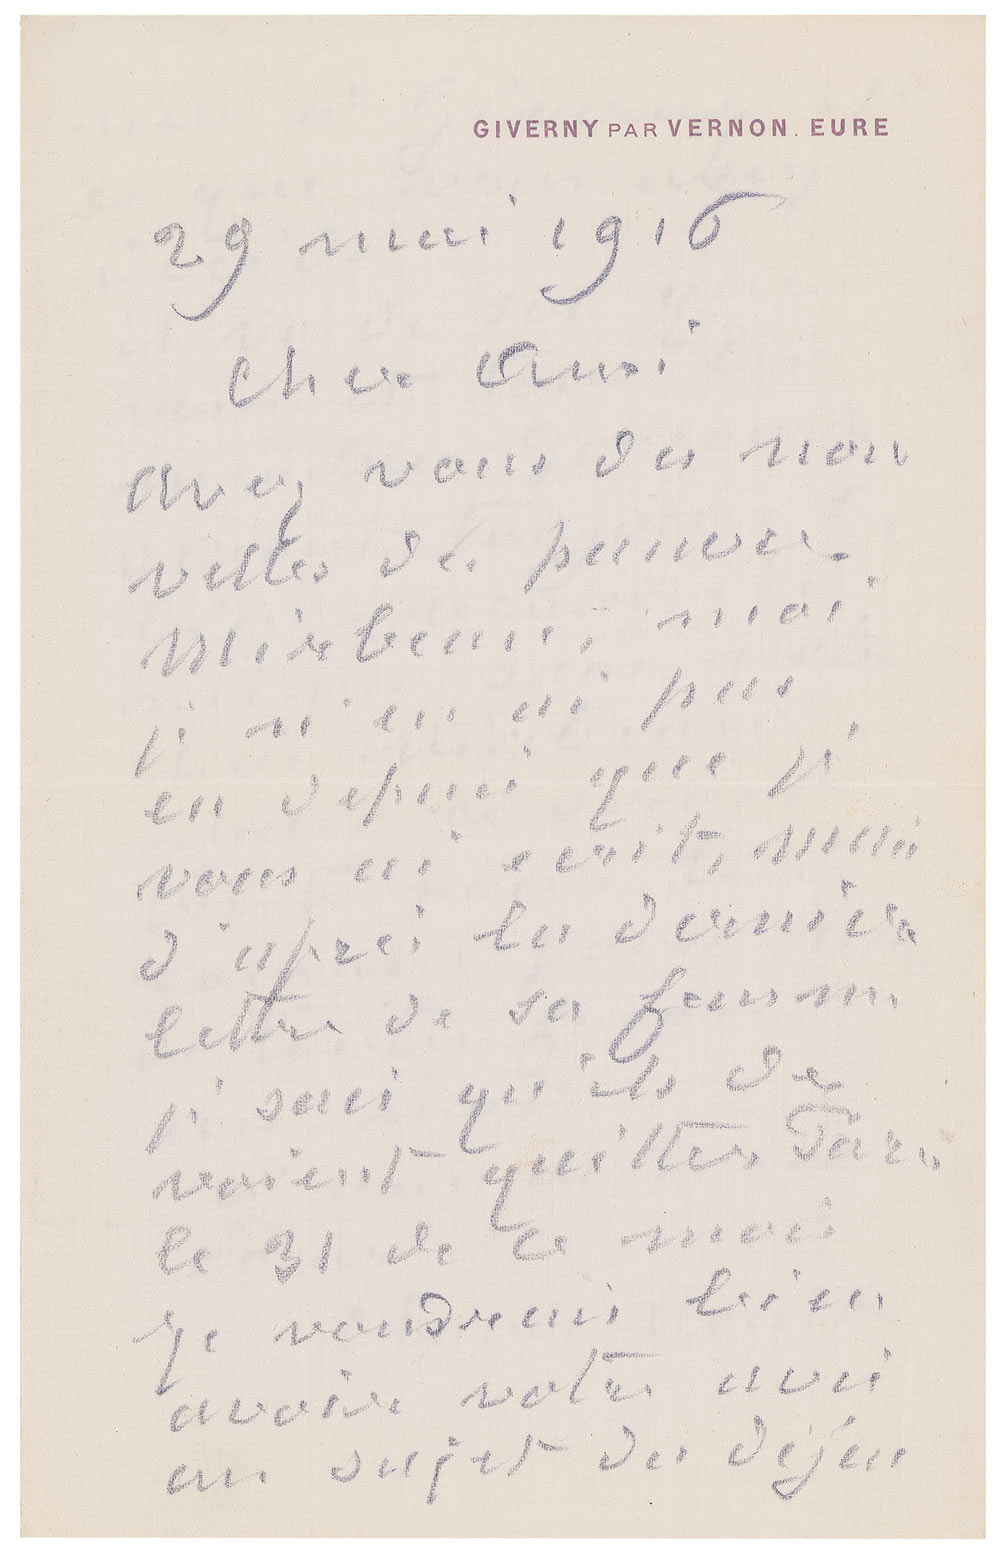 GIVERNY PAR VERNON. EURE
29 mai 1916
Cher Ami
avez vous des nou
velles de pauvre
Mirbeau, moi
j' n'en ai pas
eu depuis que j'
vous ai écrit, mais
d'après la dernière
lettre de sa femme
j' sais qu'ils de
vaient quitter Paris
le 31 de ce mois
Je voudrais bien
avoir votre avis
au sujet du déjeu